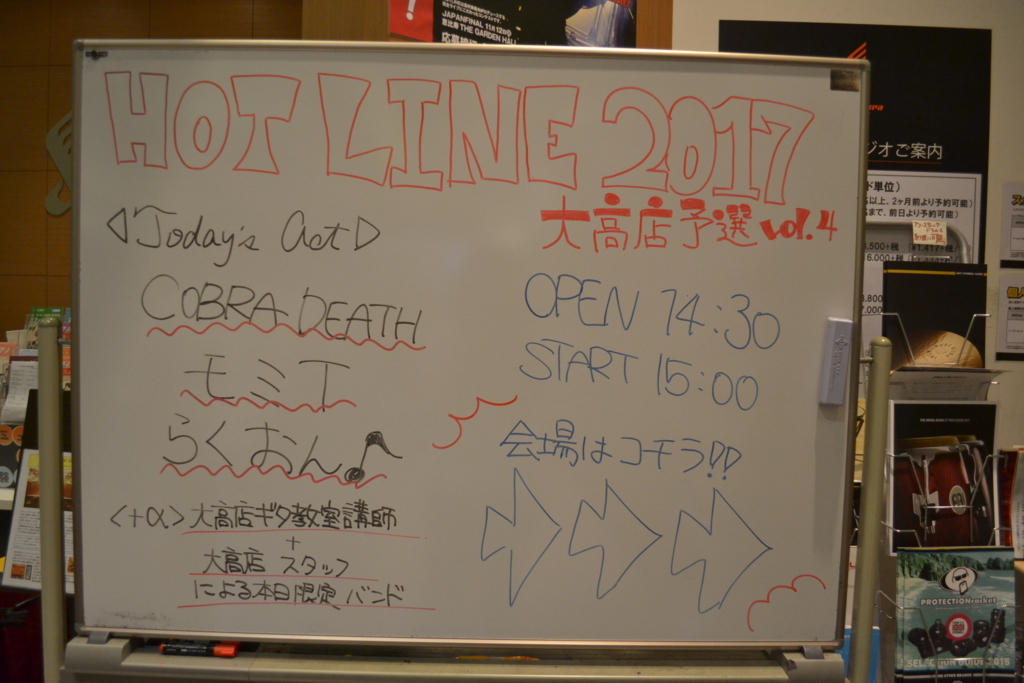 JAPANFINAL 11月12日
恵比寿 THE GARDEN HALL
HOTLINE 2017
大高店予選 vol.4
◁Today's Act▷
COBRA DEATH
モミT
らくおん♪
<+α>大高店ギタ教室講師
+
大高店 スタッフ
による本日限定 バンド
OPEN 14:30
START 15:00
会場はコチラ!!
ジオご案内
ド単位)
以上、2ヶ月前より予約可能)
まで、前日より予約可能)
PROTECTIONracket
SELECTION GUIDE 2015